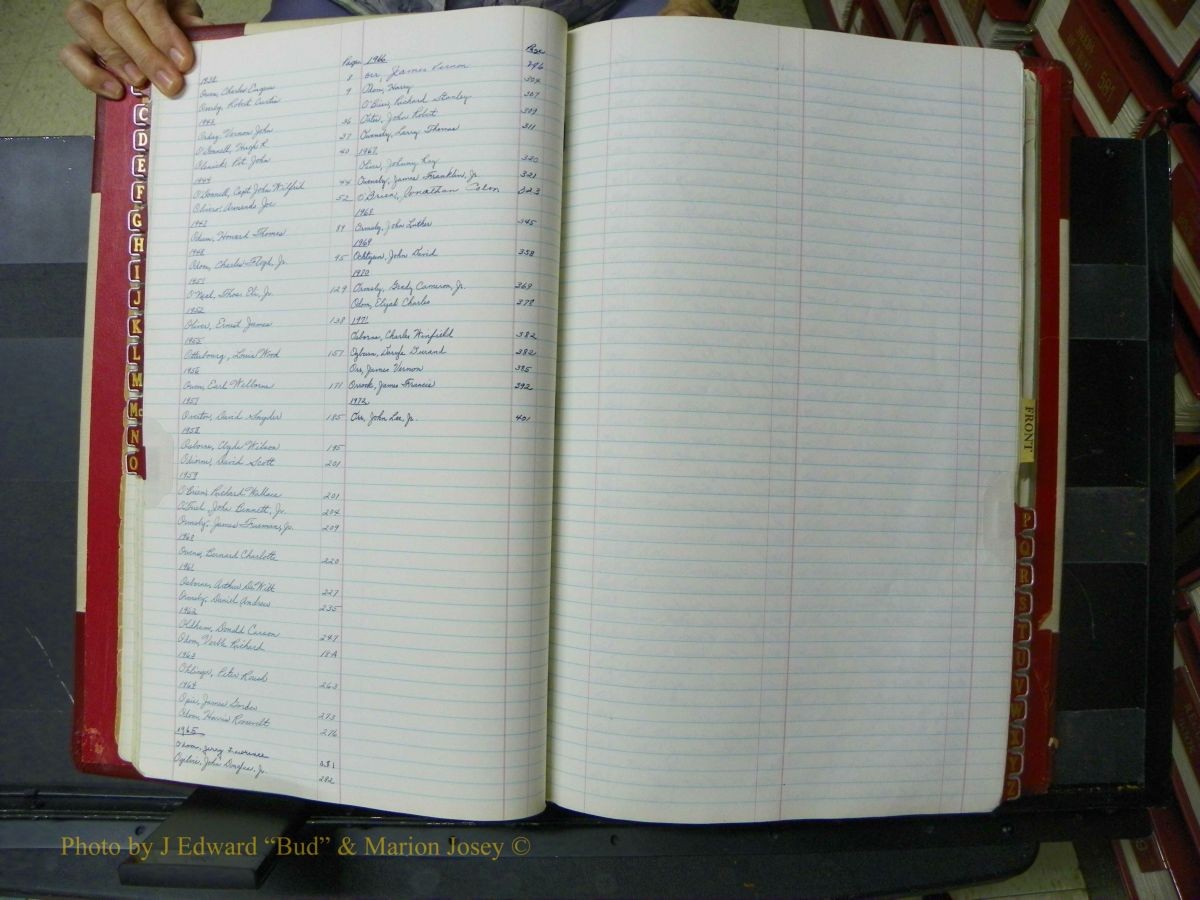 Page
1938
Owen, Charles Eugene 8
Ownby, Robert Curtis 9
1943
Vernon John 36
O'Donnell, Hugh R. 37
Pvt. John 40
1944
O'Donnell, Capt. John Wilfred 44
Olivero, Armando Joe 52
Odum, Howard Thomas 89
1948
Odom, Charles Floyd, Jr. 95
1951
O'Neal, Thos. Eli, Jr. 129
1952
Oliver, Ernest James 138
1955
Otterbourg, Louis Wood 157
1956
Owen, Earl Welborne 171
1957
Overton, David Snyder 185
1958
Osborne, Clyde Wilson 195
Odiorne, David Scott 201
1959
O'Brien, Richard Wallace 201
John Bennett, Jr. 204
Ormsby, James Truman, Jr. 209
1960
Owens, Bernard Charlotte 220
1961
Osborne, Arthur DeWitt 227
Ormsby, Daniel Andrew 235
1962
Oldham, Donald Carson 247
Odom, Verble Richard 18A
1963
Peter 263
1964
Opie, James Gordon 273
Odom, Harris Roosevelt 276
1965
Jerry Lawrence 281
Ogilvie, John Douglas, Jr. 282
1966 Page
Orr, James Vernon 296
Odom, Harry 304
O'Brien, Richard Stanley 307
John Robert 309
Ownsby, Larry Thomas 311
1967
Oliver, Johnny Ray 320
Ownsby, James Franklin, Jr. 321
O'Brien, Jonathan Colon 323
1968
Ormsby, John Luther 345
1969
John David 358
1970
Ormsby, Grady Cameron, Jr. 369
Odom, Elijah Charles 378
1971
Osborne, Charles Winfield 382
Ogburn, Durand 382
Orr, James Vernon 385
Orrock, James Francis 392
1972
Orr, John Lee, Jr. 401
C
D
E
F
G
H
I
J
K
L
M
Mc
N
O
FRONT
P
Q
R
S
T
U
V
W
Y
Z
DEEDS
581
Photo by J Edward “Bud” & Marion Josey ©